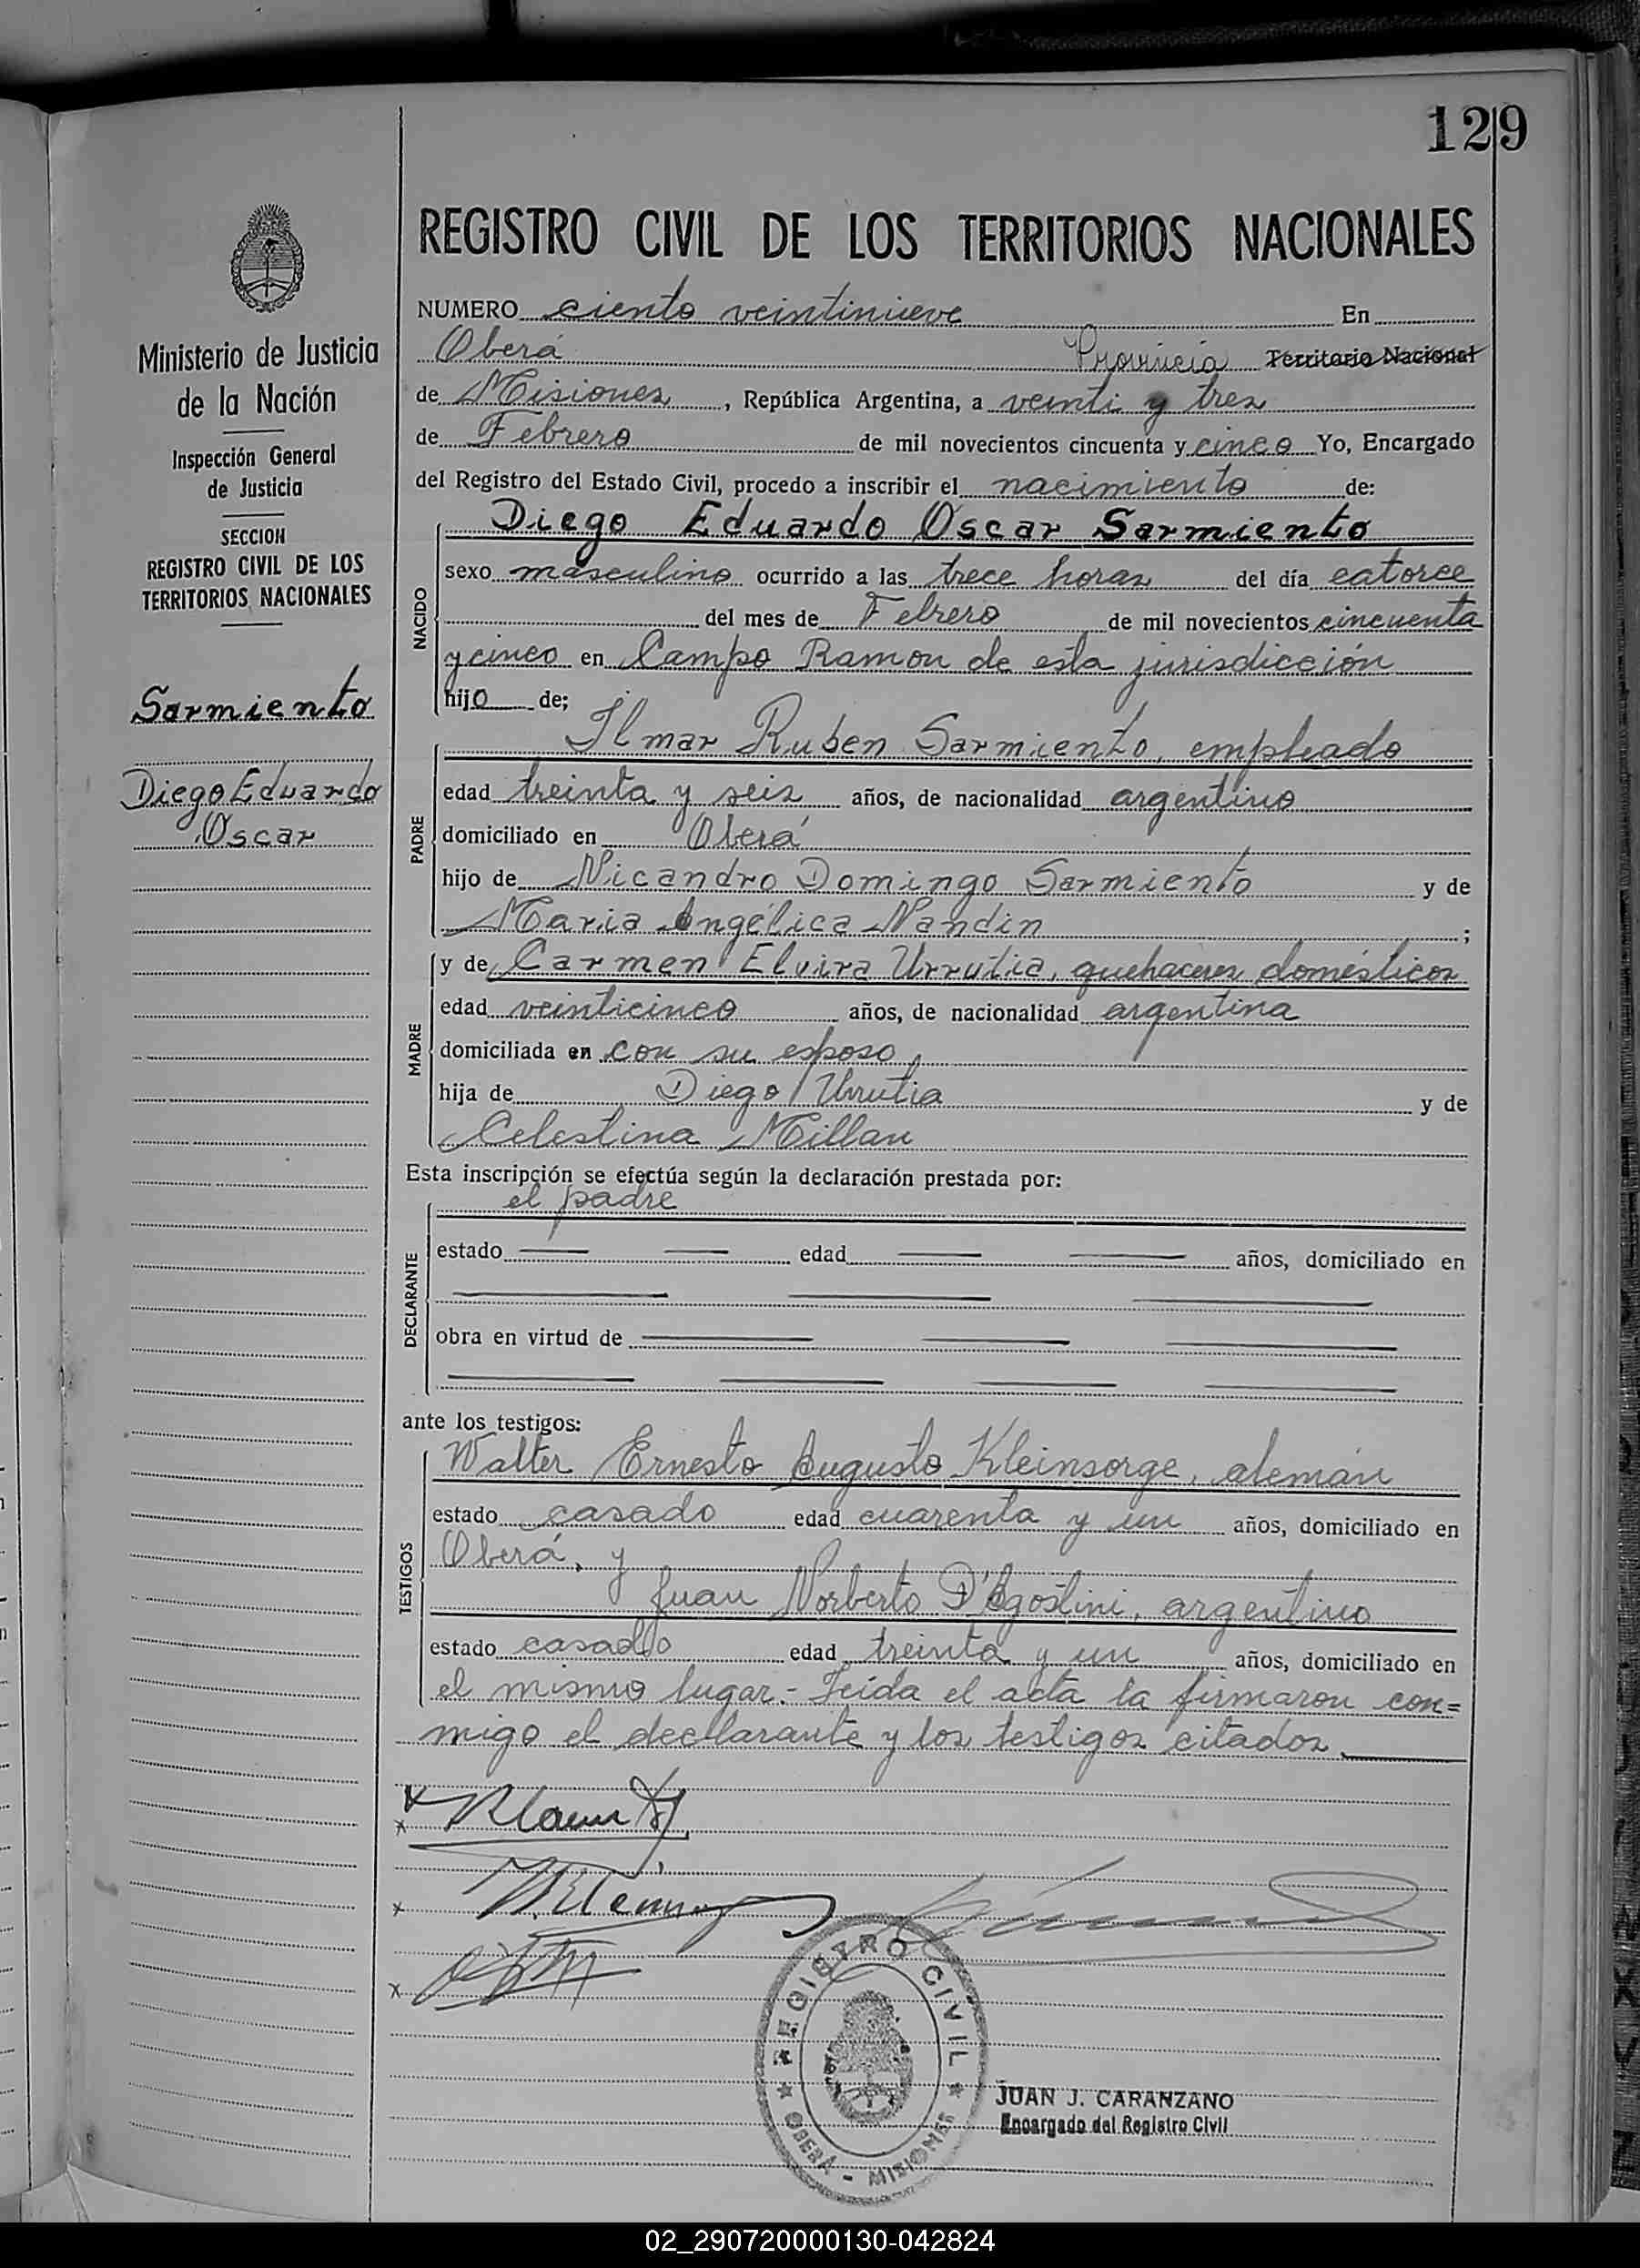 129
REGISTRO CIVIL DE LOS TERRITORIOS NACIONALES
Ministerio de Justicia
de la Nación
Inspección General
de Justicia
SECCION
REGISTRO CIVIL DE LOS
TERRITORIOS NACIONALES
Sarmiento
Diego Eduardo
Oscar
NUMERO ciento veintinueve En
Oberá Provincia Territorio Nacional
de Misiones, República Argentina, a veinti y tres
de Febrero de mil novecientos cincuenta y cinco Yo, Encargado
del Registro del Estado Civil, procedo a inscribir el nacimiento de:
NACIDO
Diego Eduardo Oscar Sarmiento
sexo masculino ocurrido a las trece horas del día catorce
del mes de Febrero de mil novecientos cincuenta
y cinco en Campo Ramon de esta jurisdicción
hijo de;
PADRE
Ilmar Ruben Sarmiento, empleado
edad treinta y seis años, de nacionalidad argentino
domiciliado en Oberá
hijo de Nicandro Domingo Sarmiento y de
Maria Angélica Nandin ;
MADRE
y de Carmen Elvira Urrutia, quehaceres domésticos
edad veinticinco años, de nacionalidad argentina
domiciliada en con su esposo,
hija de Diego Urrutia y de
Celestina Millan
Esta inscripción se efectúa según la declaración prestada por:
DECLARANTE
el padre
estado edad años, domiciliado en
obra en virtud de
ante los testigos:
TESTIGOS
Walter Ernesto Augusto Kleinsorge, alemán
estado casado edad cuarenta y un años, domiciliado en
Oberá, y
Juan Norberto D'Agostini, argentino
estado casado edad treinta y un años, domiciliado en
el mismo lugar.- Leida el acta la firmaron con=
migo el declarante y los testigos citados.
REGISTRO CIVIL
OBERÁ - MISIONES
JUAN J. CARANZANO
Encargado del Registro Civil
02_290720000130-042824